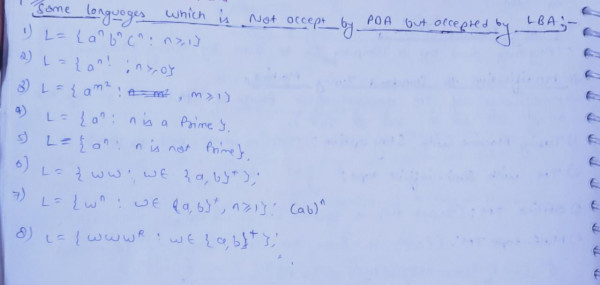 Some languages which is Not accept by PDA but accepted by LBA :-
1) L = { aⁿ bⁿ cⁿ : n ≥ 1}
2) L = { aⁿ! : n ≥ 0}
3) L = { a^m² : , m ≥ 1}
4) L = { aⁿ : n is a Prime}.
5) L = { aⁿ : n is not Prime}.
6) L = { ww : w ∈ {a, b}⁺ };
7) L = { wⁿ : w ∈ {a, b}⁺, n ≥ 1} : (ab)ⁿ
8) L = { w w wᴿ : w ∈ {a, b}⁺ };